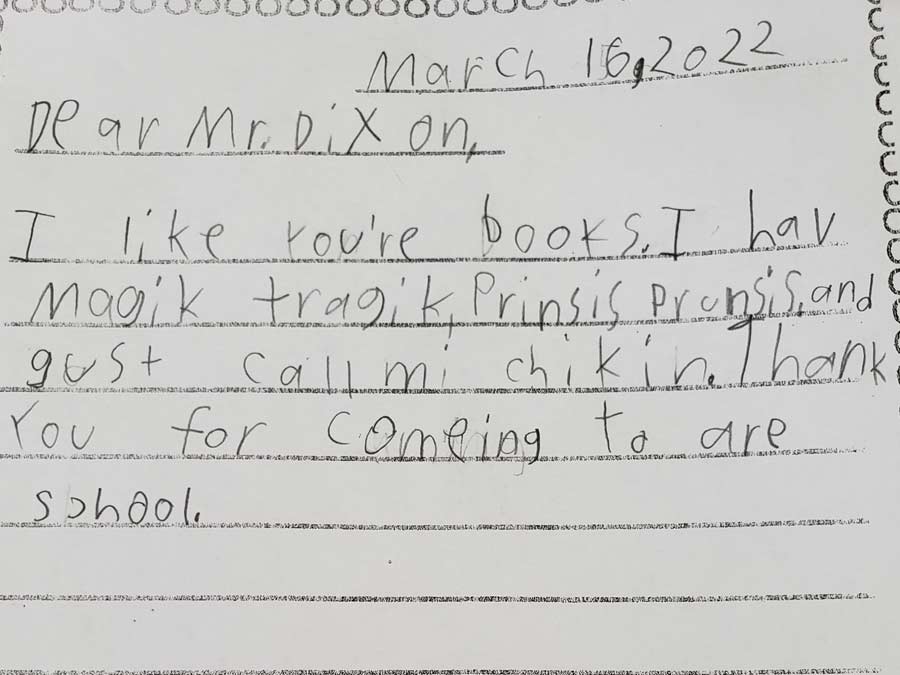 March 16, 2022
Dear Mr. Dixon,
I like you're books. I hav
Magik tragik, Prinsis Prunsis, and
gust call mi chikin. Thank
You for comeing to are
school.